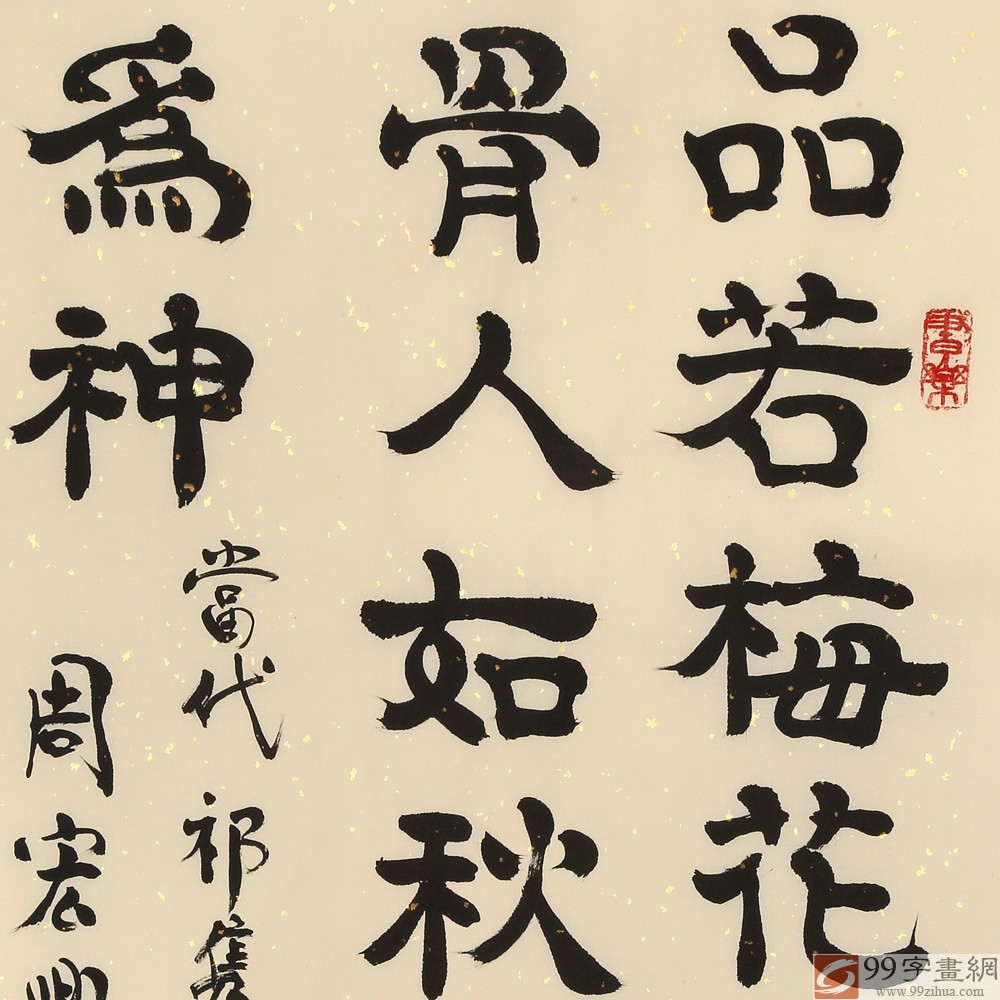 品若梅花
骨人如秋
爲神
當代祁雋
周宏興
99字畫網
www.99zihua.com